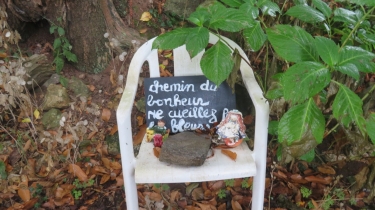 chemin du
bonheur
ne cueillez
fleurs